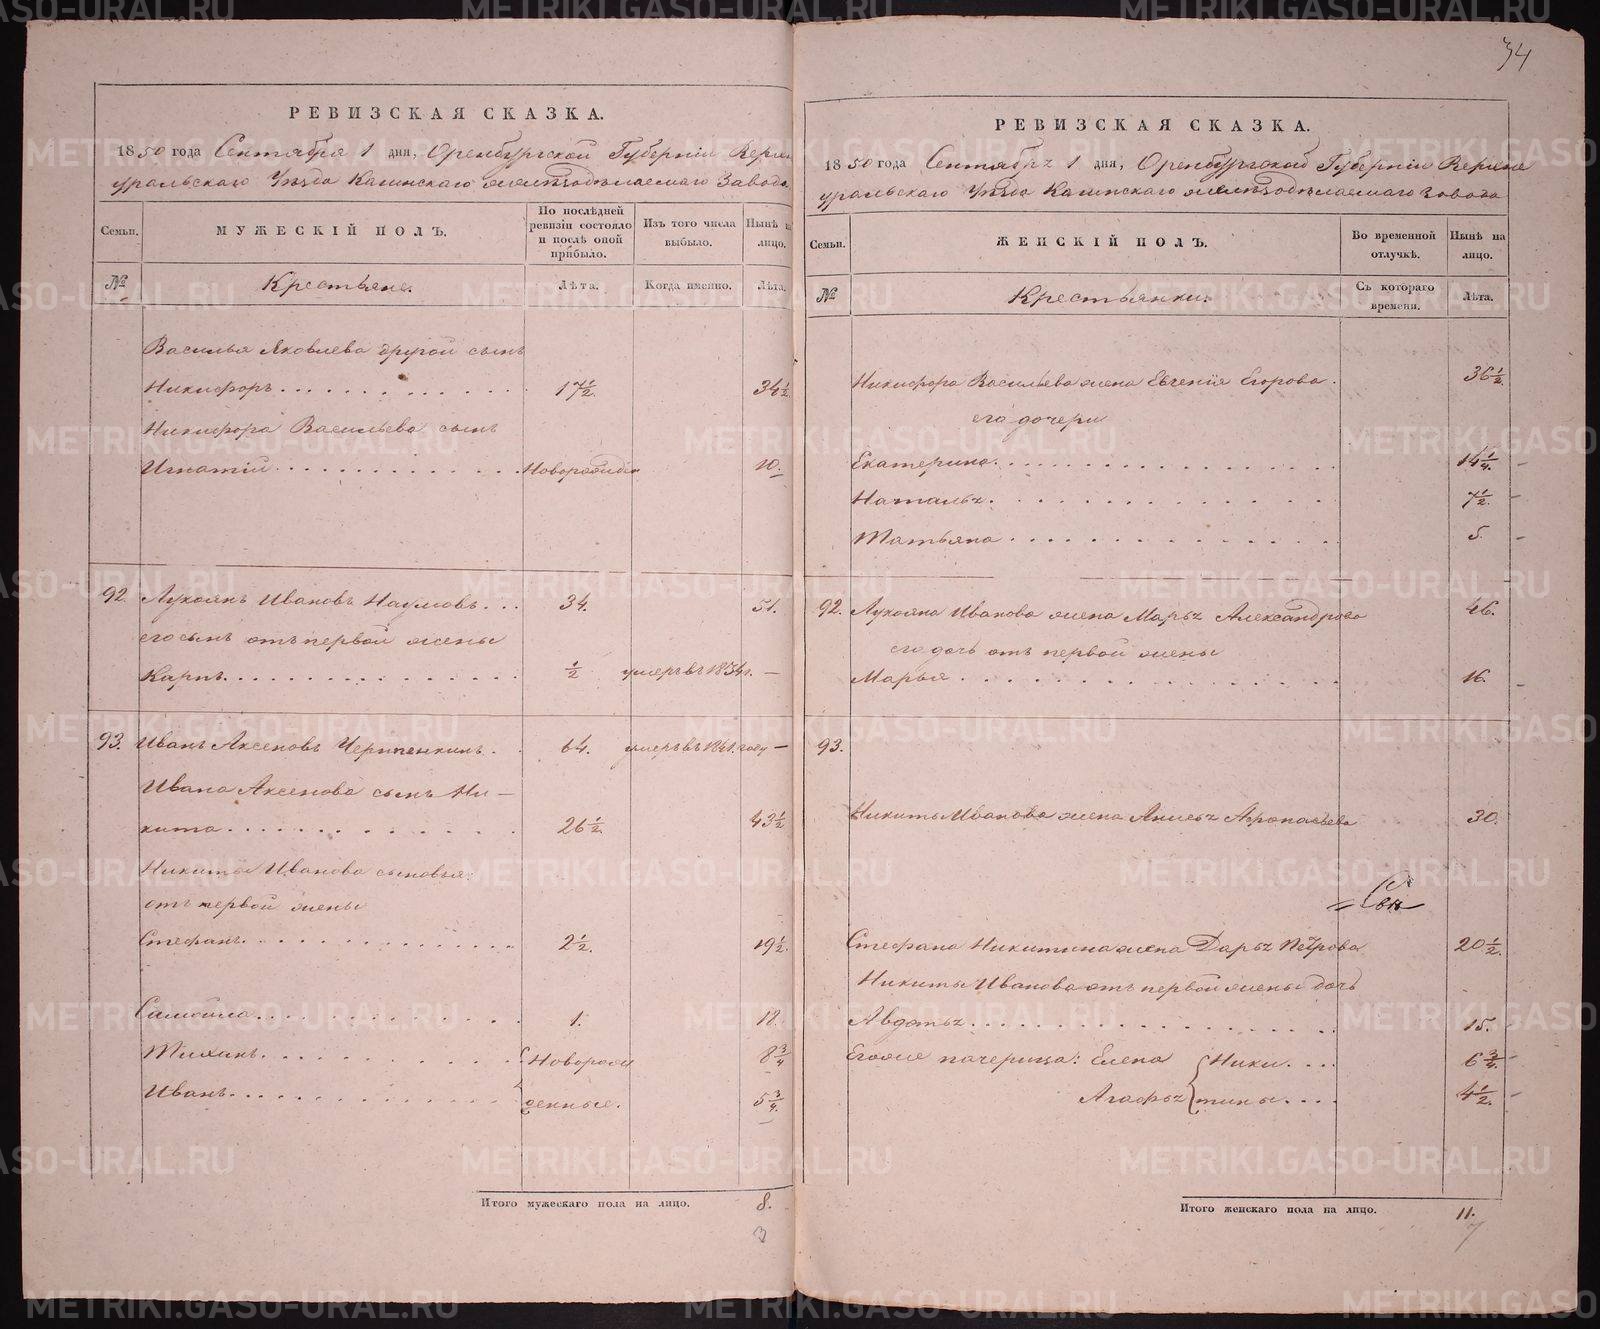 РЕВИЗСКАЯ СКАЗКА.
1850 года Сентября 1 дня, Оренбургской Губерніи Верхне
уральскаго Уѣзда Кагинскаго желѣзодѣлаемаго Завода
Семьи.
МУЖЕСКІЙ ПОЛЪ.
По послѣдней ревизіи состояло и послѣ оной прибыло.
Изъ того числа выбыло.
Нынѣ на лицо.
№
Крестьяне.
Лѣта.
Когда именно.
Лѣта.
Василья Яковлева другой сынъ
Никифоръ 17½. 34½.
Никифора Васильева сынъ
Игнатій Новорожден 10.
92 Лукоянъ Ивановъ Наумовъ 34. 51.
его сынъ отъ первой жены
Карпъ ½ умеръ въ 1834 г. —
93. Иванъ Аксеновъ Черепенкинъ 64. умеръ въ 1841. году —
Ивана Аксенова сынъ Ни-
кита 26½. 43½
Никиты Иванова сыновья:
отъ первой жены
Стефанъ 2½. 19½.
Самойла 1. 18.
Тиханъ Новорож 8¾
Иванъ денные. 5¾.
Итого мужескаго пола на лицо. 8.
3
34
РЕВИЗСКАЯ СКАЗКА.
1850 года Сентября 1 дня, Оренбургской Губерніи Верхне
уральскаго Уѣзда Кагинскаго желѣзодѣлаемаго Завода
Семьи.
ЖЕНСКІЙ ПОЛЪ.
Во временной отлучкѣ.
Нынѣ на лицо.
№
Крестьянки.
Съ котораго времени.
Лѣта.
Никифора Васильева жена Евгенія Егорова. 36½.
его дочери
Екатерина 14¼.
Наталья 7½.
Татьяна 5.
92. Лукояна Иванова жена Марья Александрова 46.
его дочь отъ первой жены
Марья 16.
93.
Никиты Иванова жена Анисья Афонасьева 30.
Стефана Никитина жена Дарья Петрова 20½.
Никиты Иванова отъ первой жены дочь
Авдотья 15.
Егоже пачерица: Елена Ники 6¾.
Агафья тины 4½.
Итого женскаго пола на лицо. 11.
7
METRIKI.GASO-URAL.RU